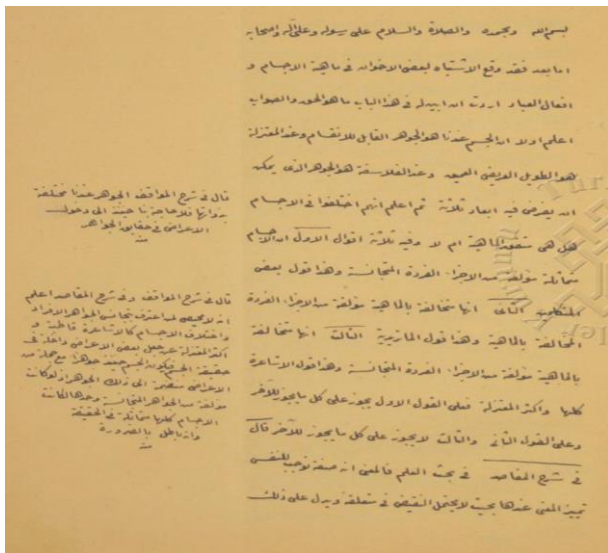 بسم الله وبحمده والصلاة والسلام على رسوله وعلى آله واصحابه
اما بعد فقد وقع الاشتباه لبعض الاخوان فى ماهية الاجسام و
افعال العباد اردت ان ابين له فى هذا الباب ما هو الحق والصواب
اعلم اولا ان الجسم عندنا هو الجوهر القابل للانقسام وعند المعتزلة
هو الطويل العريض العميق وعند الفلاسفة هو الجوهر الذى يمكن
ان يعرض فيه ابعاد ثلاثة ثم اعلم انهم اختلفوا فى الاجسام
هل هى متحدة الماهية ام لا وفيه ثلاثة اقوال الاول ان الاجسام
متماثلة مؤلفة من الاجزاء الفردة المتجانسة وهذا قول بعض
المتكلمين الثانى انها متخالفة بالماهية مؤلفة من الاجزاء الفردة
المخالفة بالماهية وهذا قول الماتريدية الثالث انها متخالفة
بالماهية مؤلفة من الاجزاء الفردة المتجانسة وهذا قول الاشاعرة
كلها واكثر المعتزلة فعلى القول الاول يجوز على كل ما يجوز للآخر
وعلى القول الثانى والثالث لا يجوز على كل ما يجوز للآخر قال
فى شرح المقاصد فى بحث العلم فالمعنى انه صفة توجب للنفس
تمييز المعنى عندها بحيث لا يحتمل النقيض فى متعلقه ويدل على ذلك
قال فى شرح المواقف الجواهر عندنا مختلفة
بذواتها فلا حاجة بنا حينئذ الى دخول
الاعراض فى حقائق الجواهر
قال فى شرح المواقف وفى شرح المقاصد اعلم
انه لا محيص لمن اعترف بتجانس الجواهر الافراد
واختلاف الاجسام كالاشاعرة قاطبة و
اكثر المعتزلة عن جعل بعض الاعراض داخلة فى
حقيقة الجسم فيكون الجسم حينئذ جوهرا مع جملة من
الاعراض منضمة الى ذلك الجوهر اذ لو كانت
مؤلفة من الجواهر المتجانسة وحدها لكانت
الاجسام كلها متماثلة فى الحقيقة
وانه باطل بالضرورة